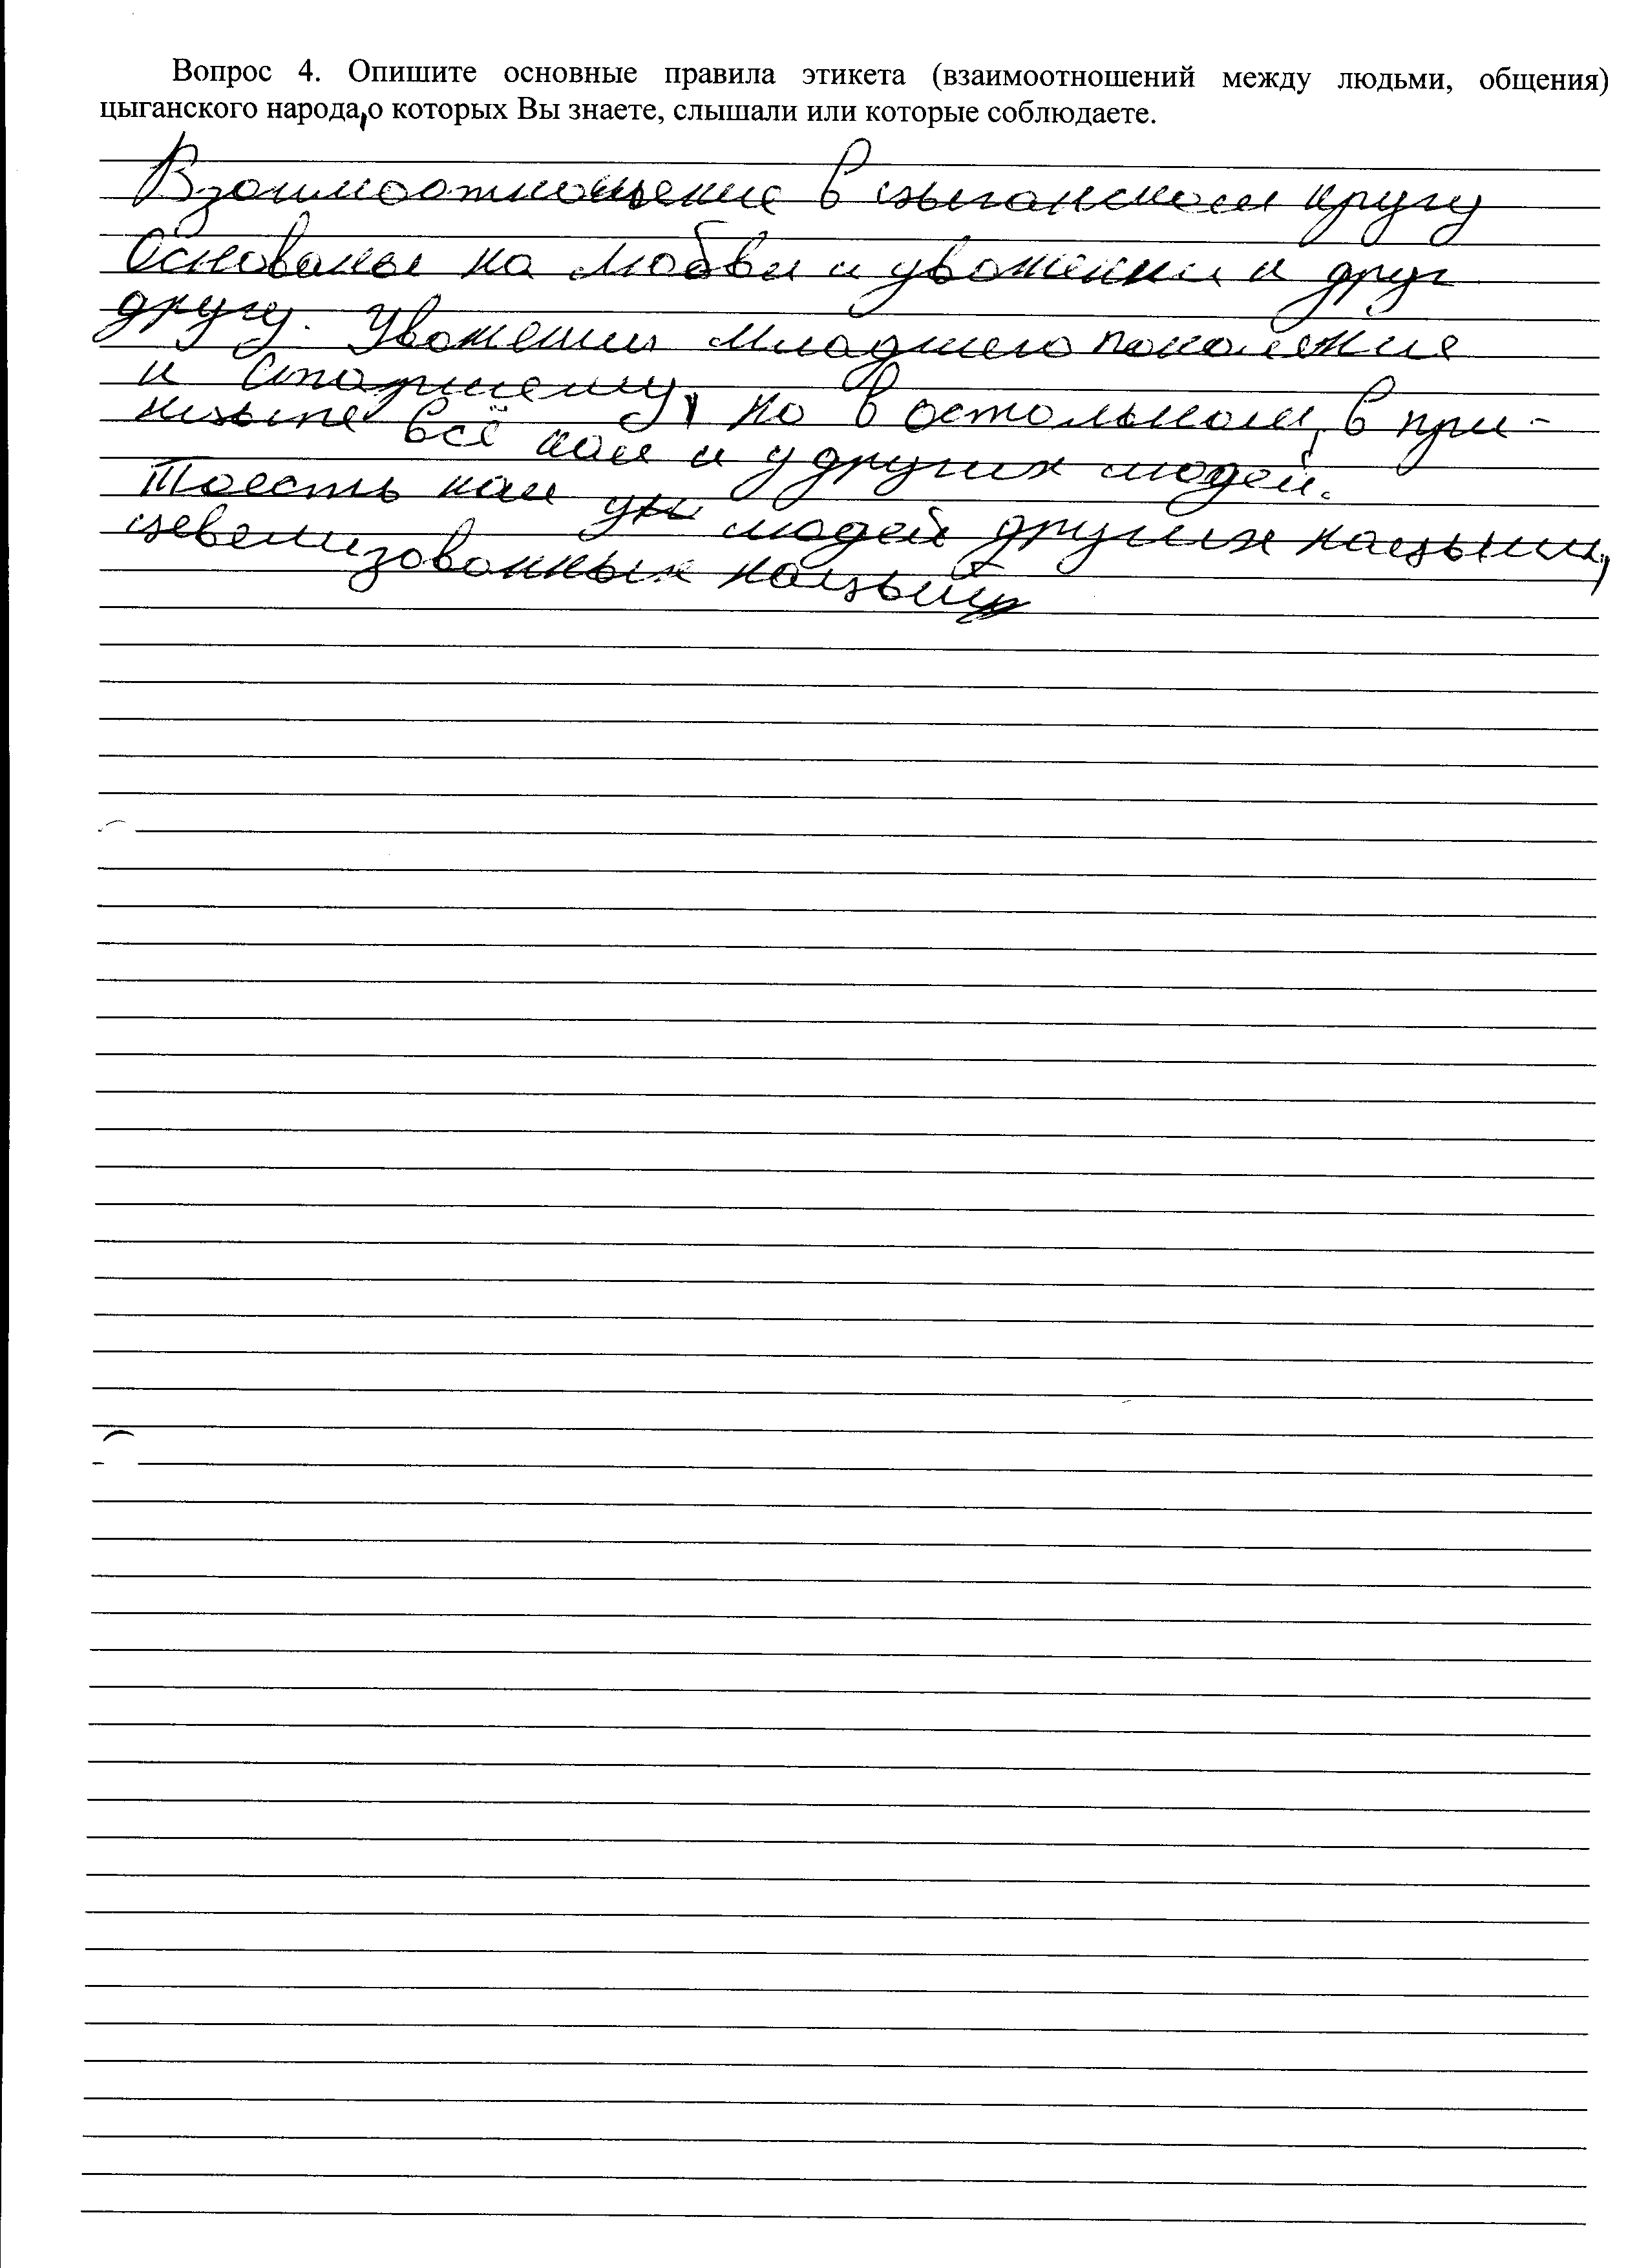 Вопрос 4. Опишите основные правила этикета (взаимоотношений между людьми, общения)
цыганского народа, о которых Вы знаете, слышали или которые соблюдаете.
Взоимоотношение в цыганском кругу
Основаны на любви и уважении к друг
другу. Уважении младшего поколение
к старшему, но в остольном, в при-
нцыпе всё как и у других людей.
Тоесть как у людей других нацыии,
цевелизованных нацый